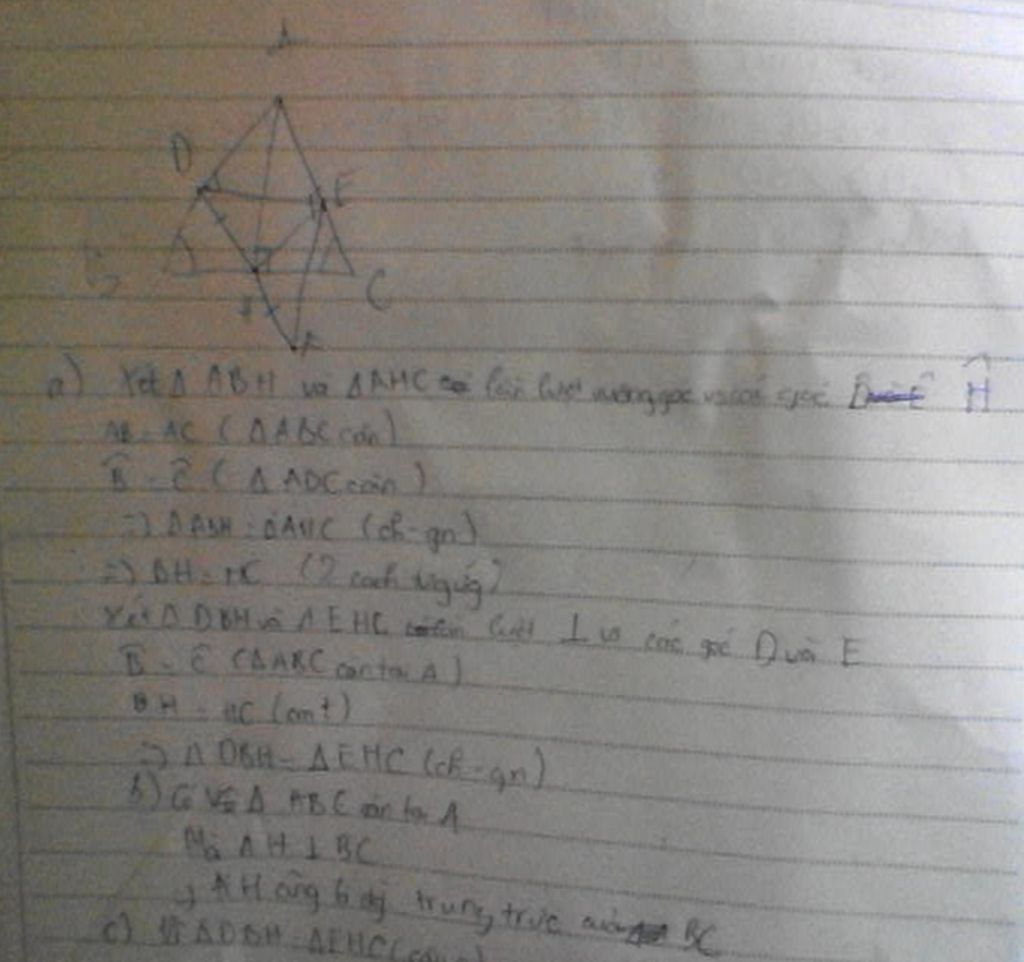 A
D
E
B
C
a) Xét Δ ABH và ΔAHC lần lượt vuông góc các góc Ĥ
AB = AC (ΔABC cân)
B̂ = Ĉ (Δ ABC cân)
=> ΔABH = ΔAHC (ch-gn)
=> BH = HC (2 cạnh tg ứng)
Xét Δ DBH và ΔEHC lần lượt ⊥ các góc D và E
B̂ = Ĉ (ΔABC cân tại A)
BH = HC (cmt)
=> Δ DBH = ΔEHC (ch-gn)
b) Δ ABC cân tại A
Mà AH ⊥ BC
AH cũng là đg trung trực của BC
c) Vì ΔDBH = ΔEHC